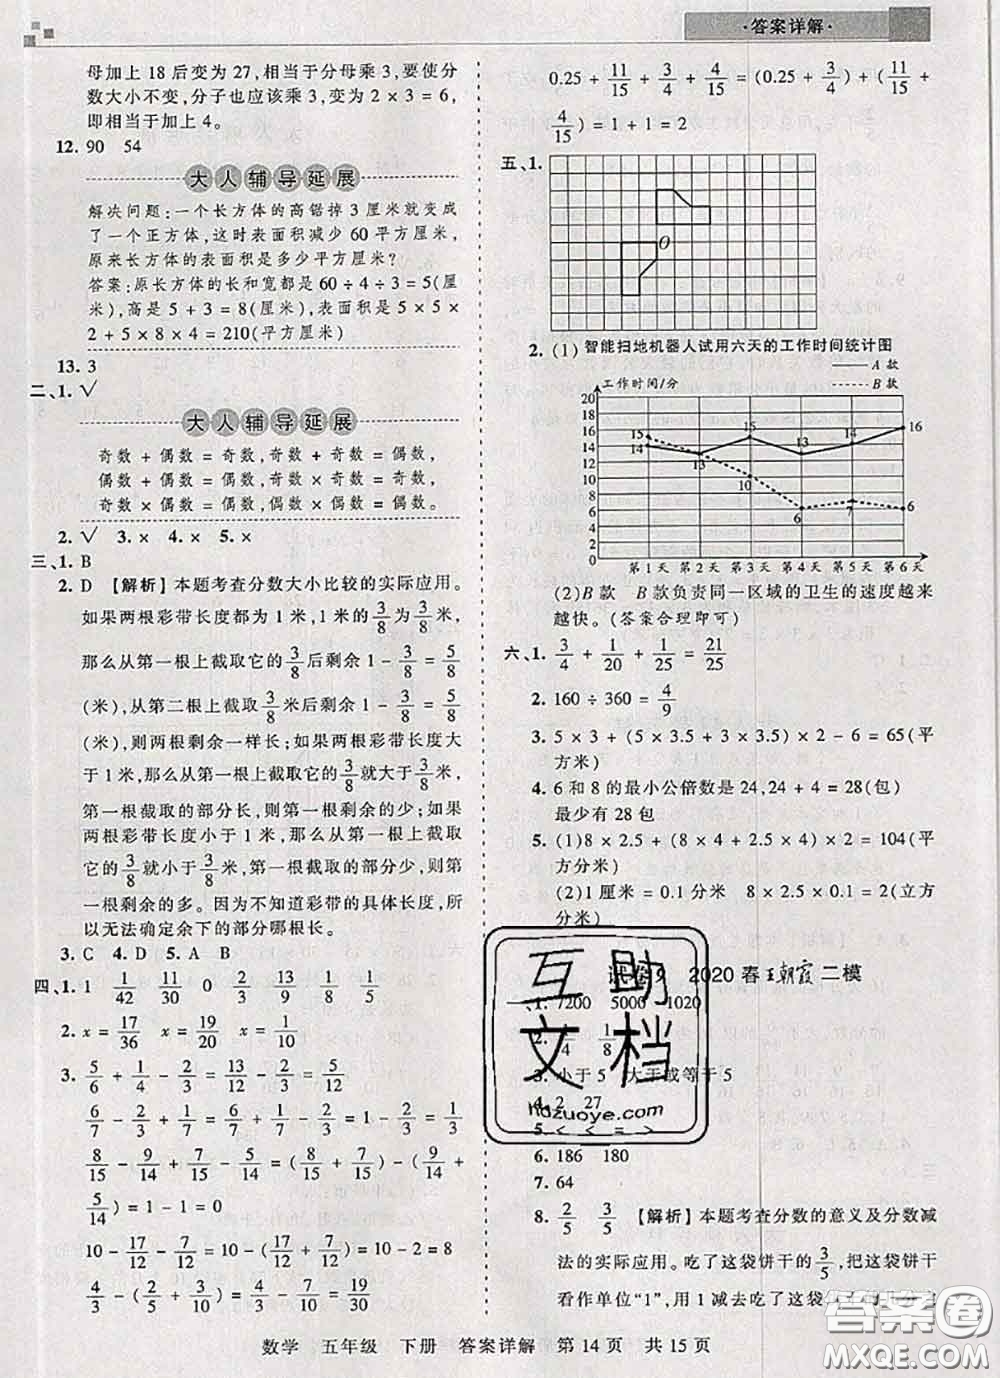 ·答案详解·
母加上 18 后变为 27,相当于分母乘 3,要使分
数大小不变,分子也应该乘 3,变为 2 × 3 = 6,
即相当于加上 4。
12. 90 54
大人辅导延展
解决问题:一个长方体的高锯掉 3 厘米就变成
了一个正方体,这时表面积减少 60 平方厘米,
原来长方体的表面积是多少平方厘米?
答案:原长方体的长和宽都是 60 ÷ 4 ÷ 3 = 5(厘
米),高是 5 + 3 = 8(厘米),表面积是 5 × 5 ×
2 + 5 × 8 × 4 = 210(平方厘米)
13. 3
二、1. √
大人辅导延展
奇数 + 偶数 = 奇数,奇数 + 奇数 = 偶数,
偶数 + 偶数 = 偶数,奇数 × 奇数 = 奇数,
奇数 × 偶数 = 偶数,偶数 × 偶数 = 偶数。
2. √ 3. × 4. × 5. ×
三、1. B
2. D 【解析】本题考查分数大小比较的实际应用。
如果两根彩带长度都为 1 米,1 米的 3/8 为 3/8 米,
那么从第一根上截取它的 3/8 后剩余 1 - 3/8 = 5/8
(米),从第二根上截取 3/8 米后剩余 1 - 3/8 = 5/8
(米),则两根剩余一样长;如果两根彩带长度大
于 1 米,那么从第一根上截取它的 3/8 就大于 3/8 米,
第一根截取的部分长,第一根剩余的少;如果
两根彩带长度小于 1 米,那么从第一根上截取
它的 3/8 就小于 3/8 米,第一根截取的部分少,第
一根剩余的多。因为不知道彩带的具体长度,所
以无法确定余下的部分哪根长。
3. C 4. D 5. A B
四、1. 1 1/42 11/30 0 1/21 4/15 0 1/2
2. x = 17/36 x = 19/20 x = 1/10
3. 5/6 + 1/4 - 2/3 = 13/12 - 2/3 = 5/12
6/7 - 2/3 + 1/7 = 6/7 + 1/7 - 2/3 = 1 - 2/3 = 1/3
8/15 - 9/14 + 7/15 - 5/14 = (8/15 + 7/15) - (9/14 +
5/14) = 1 - 1 = 0
10 - 17/12 - 7/12 = 10 - (17/12 + 7/12) = 10 - 2 = 8
4/3 - (2/5 + 3/10) = 4/3 - 7/10 = 19/30
0.25 + 11/15 + 3/4 + 4/15 = (0.25 + 3/4) + (11/15 +
4/15) = 1 + 1 = 2
五、1.
O
2. (1) 智能扫地机器人试用六天的工作时间统计图
A 款
工作时间/分
B 款
20
18
16
14
12
10
8
6
4
2
0
15
14
13
15
10
13
6
14
7
16
6
第1天 第2天 第3天 第4天 第5天 第6天
(2)B 款 B 款负责同一区域的卫生的速度越来
越快。(答案合理即可)
六、1. 3/4 + 1/20 + 1/25 = 21/25
2. 160 ÷ 360 = 4/9
3. 5 × 3 + (5 × 3.5 + 3 × 3.5) × 2 - 6 = 65(平
方米)
4. 6 和 8 的最小公倍数是 24,24 + 4 = 28(包)
最少有 28 包
5. (1)8 × 2.5 + (8 × 4 + 2.5 × 4) × 2 = 104(平
方分米)
(2)1 厘米 = 0.1 分米 8 × 2.5 × 0.1 = 2(立方
分米)
试卷 9 2020 春王朝霞二模
一、1. 7200 5000 1020
2. 1/4 1/8
3. 小于 5 大于或等于 5
4. 2 27
5. < < = >
6. 186 180
7. 64
8. 2/5 3/5 【解析】本题考查分数的意义及分数减
法的实际应用。吃了这袋饼干的 3/5,把这袋饼干
看作单位“1”,用 1 减去吃了这袋
数学 五年级 下册 答案详解 第 14 页 共 15 页
互助文档
hdzuoye.com
答案圈
MXQE.COM